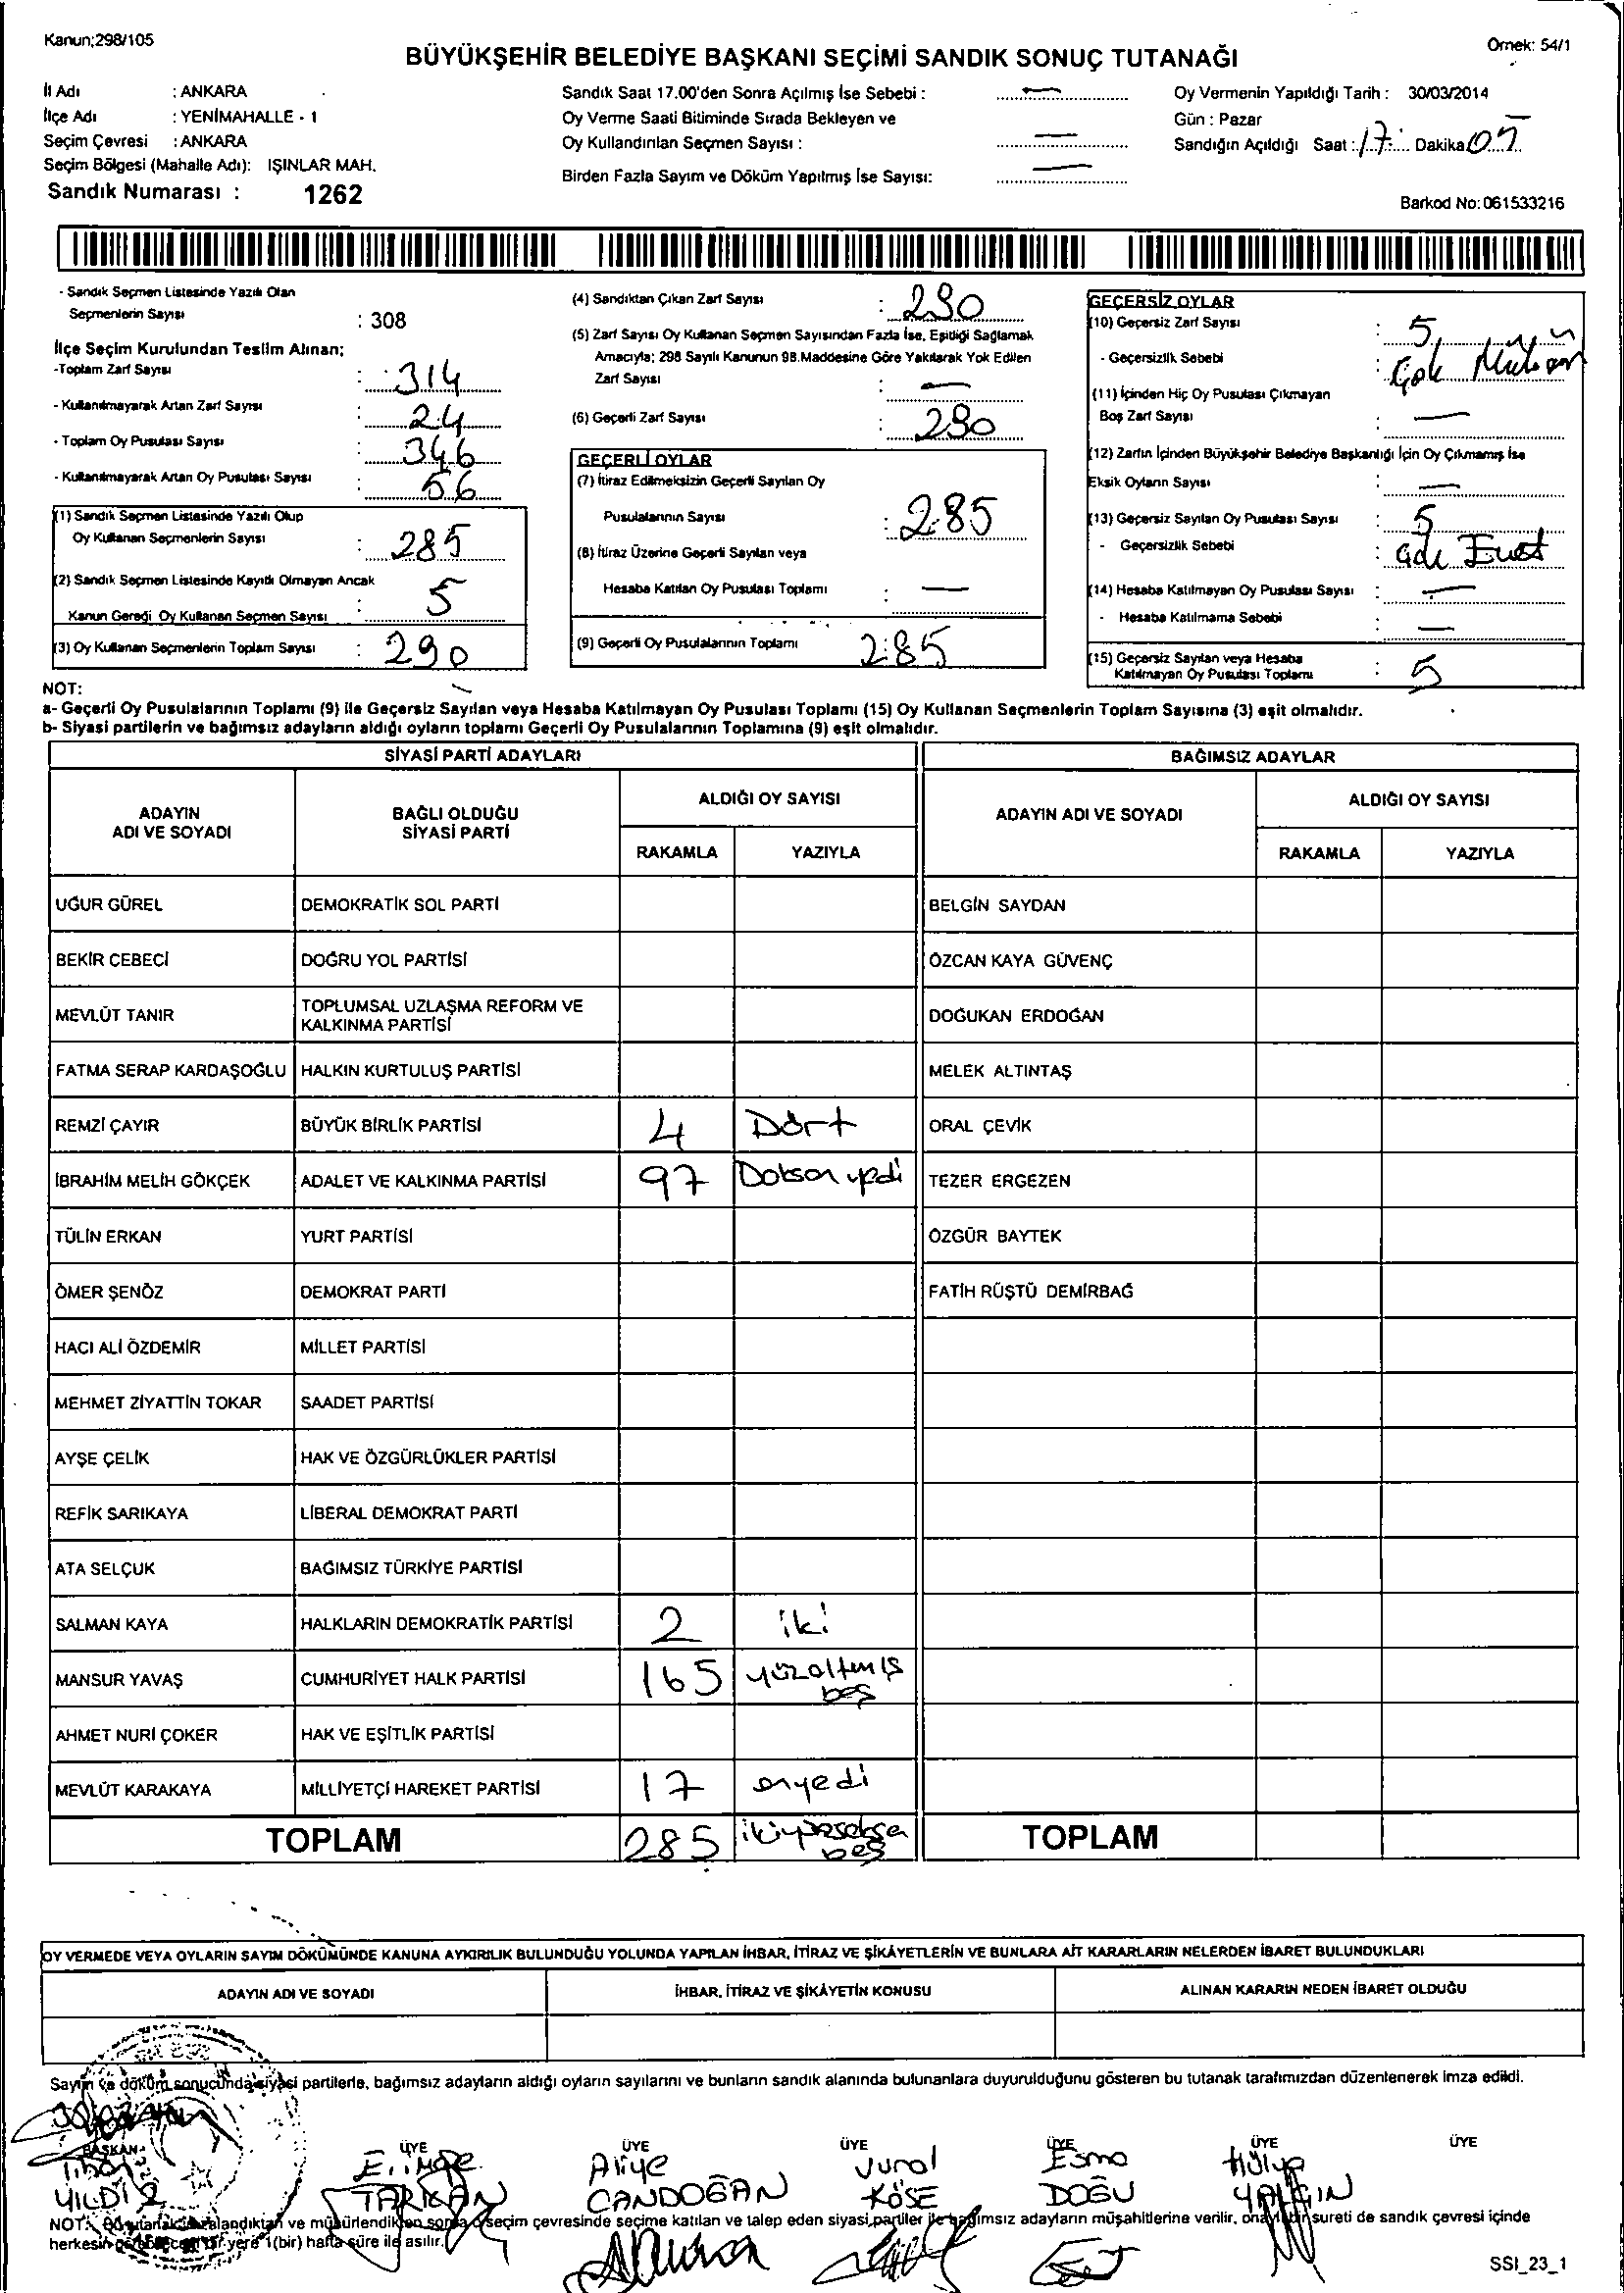 Kanun;298/105
Örnek: 54/1
BÜYÜKŞEHİR BELEDİYE BAŞKANI SEÇİMİ SANDIK SONUÇ TUTANAĞI
İl Adı : ANKARA
İlçe Adı : YENİMAHALLE - 1
Seçim Çevresi : ANKARA
Seçim Bölgesi (Mahalle Adı): IŞINLAR MAH.
Sandık Numarası : 1262
Sandık Saat 17.00'den Sonra Açılmış İse Sebebi : —
Oy Verme Saati Bitiminde Sırada Bekleyen ve
Oy Kullandırılan Seçmen Sayısı : —
Birden Fazla Sayım ve Döküm Yapılmış İse Sayısı: —
Oy Vermenin Yapıldığı Tarih : 30/03/2014
Gün : Pazar
Sandığın Açıldığı Saat : 17 Dakika
Barkod No: 061533216
- Sandık Seçmen Listesinde Yazılı Olan
Seçmenlerin Sayısı : 308
İlçe Seçim Kurulundan Teslim Alınan;
-Toplam Zarf Sayısı : 314
- Kullanılmayarak Artan Zarf Sayısı : 24
- Toplam Oy Pusulası Sayısı : 346
- Kullanılmayarak Artan Oy Pusulası Sayısı : 56
(1) Sandık Seçmen Listesinde Yazılı Olup
Oy Kullanan Seçmenlerin Sayısı : 285
(2) Sandık Seçmen Listesinde Kayıtlı Olmayan Ancak
Kanun Gereği Oy Kullanan Seçmen Sayısı : 5
(3) Oy Kullanan Seçmenlerin Toplam Sayısı : 290
(4) Sandıktan Çıkan Zarf Sayısı : 290
(5) Zarf Sayısı Oy Kullanan Seçmen Sayısından Fazla İse, Eşitliği Sağlamak
Amacıyla; 298 Sayılı Kanunun 98.Maddesine Göre Yakılarak Yok Edilen
Zarf Sayısı : —
(6) Geçerli Zarf Sayısı : 290
GEÇERLİ OYLAR
(7) İtiraz Edilmeksizin Geçerli Sayılan Oy
Pusulalarının Sayısı : 285
(8) İtiraz Üzerine Geçerli Sayılan veya
Hesaba Katılan Oy Pusulası Toplamı : —
(9) Geçerli Oy Pusulalarının Toplamı 285
GEÇERSİZ OYLAR
(10) Geçersiz Zarf Sayısı : 5
- Geçersizlik Sebebi : Çok
(11) İçinden Hiç Oy Pusulası Çıkmayan
Boş Zarf Sayısı : —
(12) Zarfın İçinden Büyükşehir Belediye Başkanlığı İçin Oy Çıkmamış İse
Eksik Oyların Sayısı : —
(13) Geçersiz Sayılan Oy Pusulası Sayısı : 5
- Geçersizlik Sebebi :
(14) Hesaba Katılmayan Oy Pusulası Sayısı : —
- Hesaba Katılmama Sebebi : —
(15) Geçersiz Sayılan veya Hesaba
Katılmayan Oy Pusulası Toplamı : 5
NOT:
a- Geçerli Oy Pusulalarının Toplamı (9) ile Geçersiz Sayılan veya Hesaba Katılmayan Oy Pusulası Toplamı (15) Oy Kullanan Seçmenlerin Toplam Sayısına (3) eşit olmalıdır.
b- Siyasi partilerin ve bağımsız adayların aldığı oyların toplamı Geçerli Oy Pusulalarının Toplamına (9) eşit olmalıdır.
SİYASİ PARTİ ADAYLARI BAĞIMSIZ ADAYLAR
ADAYIN ADI VE SOYADI BAĞLI OLDUĞU SİYASİ PARTİ ALDIĞI OY SAYISI ADAYIN ADI VE SOYADI ALDIĞI OY SAYISI
RAKAMLA YAZIYLA RAKAMLA YAZIYLA
UĞUR GÜREL DEMOKRATİK SOL PARTİ BELGİN SAYDAN
BEKİR CEBECİ DOĞRU YOL PARTİSİ ÖZCAN KAYA GÜVENÇ
MEVLÜT TANIR TOPLUMSAL UZLAŞMA REFORM VE KALKINMA PARTİSİ DOĞUKAN ERDOĞAN
FATMA SERAP KARDAŞOĞLU HALKIN KURTULUŞ PARTİSİ MELEK ALTINTAŞ
REMZİ ÇAYIR BÜYÜK BİRLİK PARTİSİ 4 Dört ORAL ÇEVİK
İBRAHİM MELİH GÖKÇEK ADALET VE KALKINMA PARTİSİ 97 Doksan yedi TEZER ERGEZEN
TÜLİN ERKAN YURT PARTİSİ ÖZGÜR BAYTEK
ÖMER ŞENÖZ DEMOKRAT PARTİ FATİH RÜŞTÜ DEMİRBAĞ
HACI ALİ ÖZDEMİR MİLLET PARTİSİ
MEHMET ZİYATTİN TOKAR SAADET PARTİSİ
AYŞE ÇELİK HAK VE ÖZGÜRLÜKLER PARTİSİ
REFİK SARIKAYA LİBERAL DEMOKRAT PARTİ
ATA SELÇUK BAĞIMSIZ TÜRKİYE PARTİSİ
SALMAN KAYA HALKLARIN DEMOKRATİK PARTİSİ 2 iki
MANSUR YAVAŞ CUMHURİYET HALK PARTİSİ 165 yüzaltmış beş
AHMET NURİ ÇOKER HAK VE EŞİTLİK PARTİSİ
MEVLÜT KARAKAYA MİLLİYETÇİ HAREKET PARTİSİ 17 onyedi
TOPLAM 285 ikiyüzseksen beş TOPLAM
OY VERMEDE VEYA OYLARIN SAYIM DÖKÜMÜNDE KANUNA AYKIRILIK BULUNDUĞU YOLUNDA YAPILAN İHBAR, İTİRAZ VE ŞİKÂYETLERİN VE BUNLARA AİT KARARLARIN NELERDEN İBARET BULUNDUKLARI
ADAYIN ADI VE SOYADI İHBAR, İTİRAZ VE ŞİKÂYETİN KONUSU ALINAN KARARIN NEDEN İBARET OLDUĞU
Sayım ve döküm sonucunda siyasi partilerle, bağımsız adayların aldığı oyların sayılarını ve bunların sandık alanında bulunanlara duyurulduğunu gösteren bu tutanak tarafımızdan düzenlenerek imza edildi.
BAŞKAN ÜYE ÜYE ÜYE ÜYE ÜYE ÜYE
Aliye Vural Esma Hülya
YILDIZ TARKAN CANDOĞAN KÖSE DOĞU YALÇIN
NOT: Bu tutanak imzalandıktan ve mühürlendikten sonra seçim çevresinde seçime katılan ve talep eden siyasi partiler ile bağımsız adayların müşahitlerine verilir, onaylı bir sureti de sandık çevresi içinde
herkesin görebileceği bir yere 1(bir) hafta süre ile asılır.
SSI_23_1